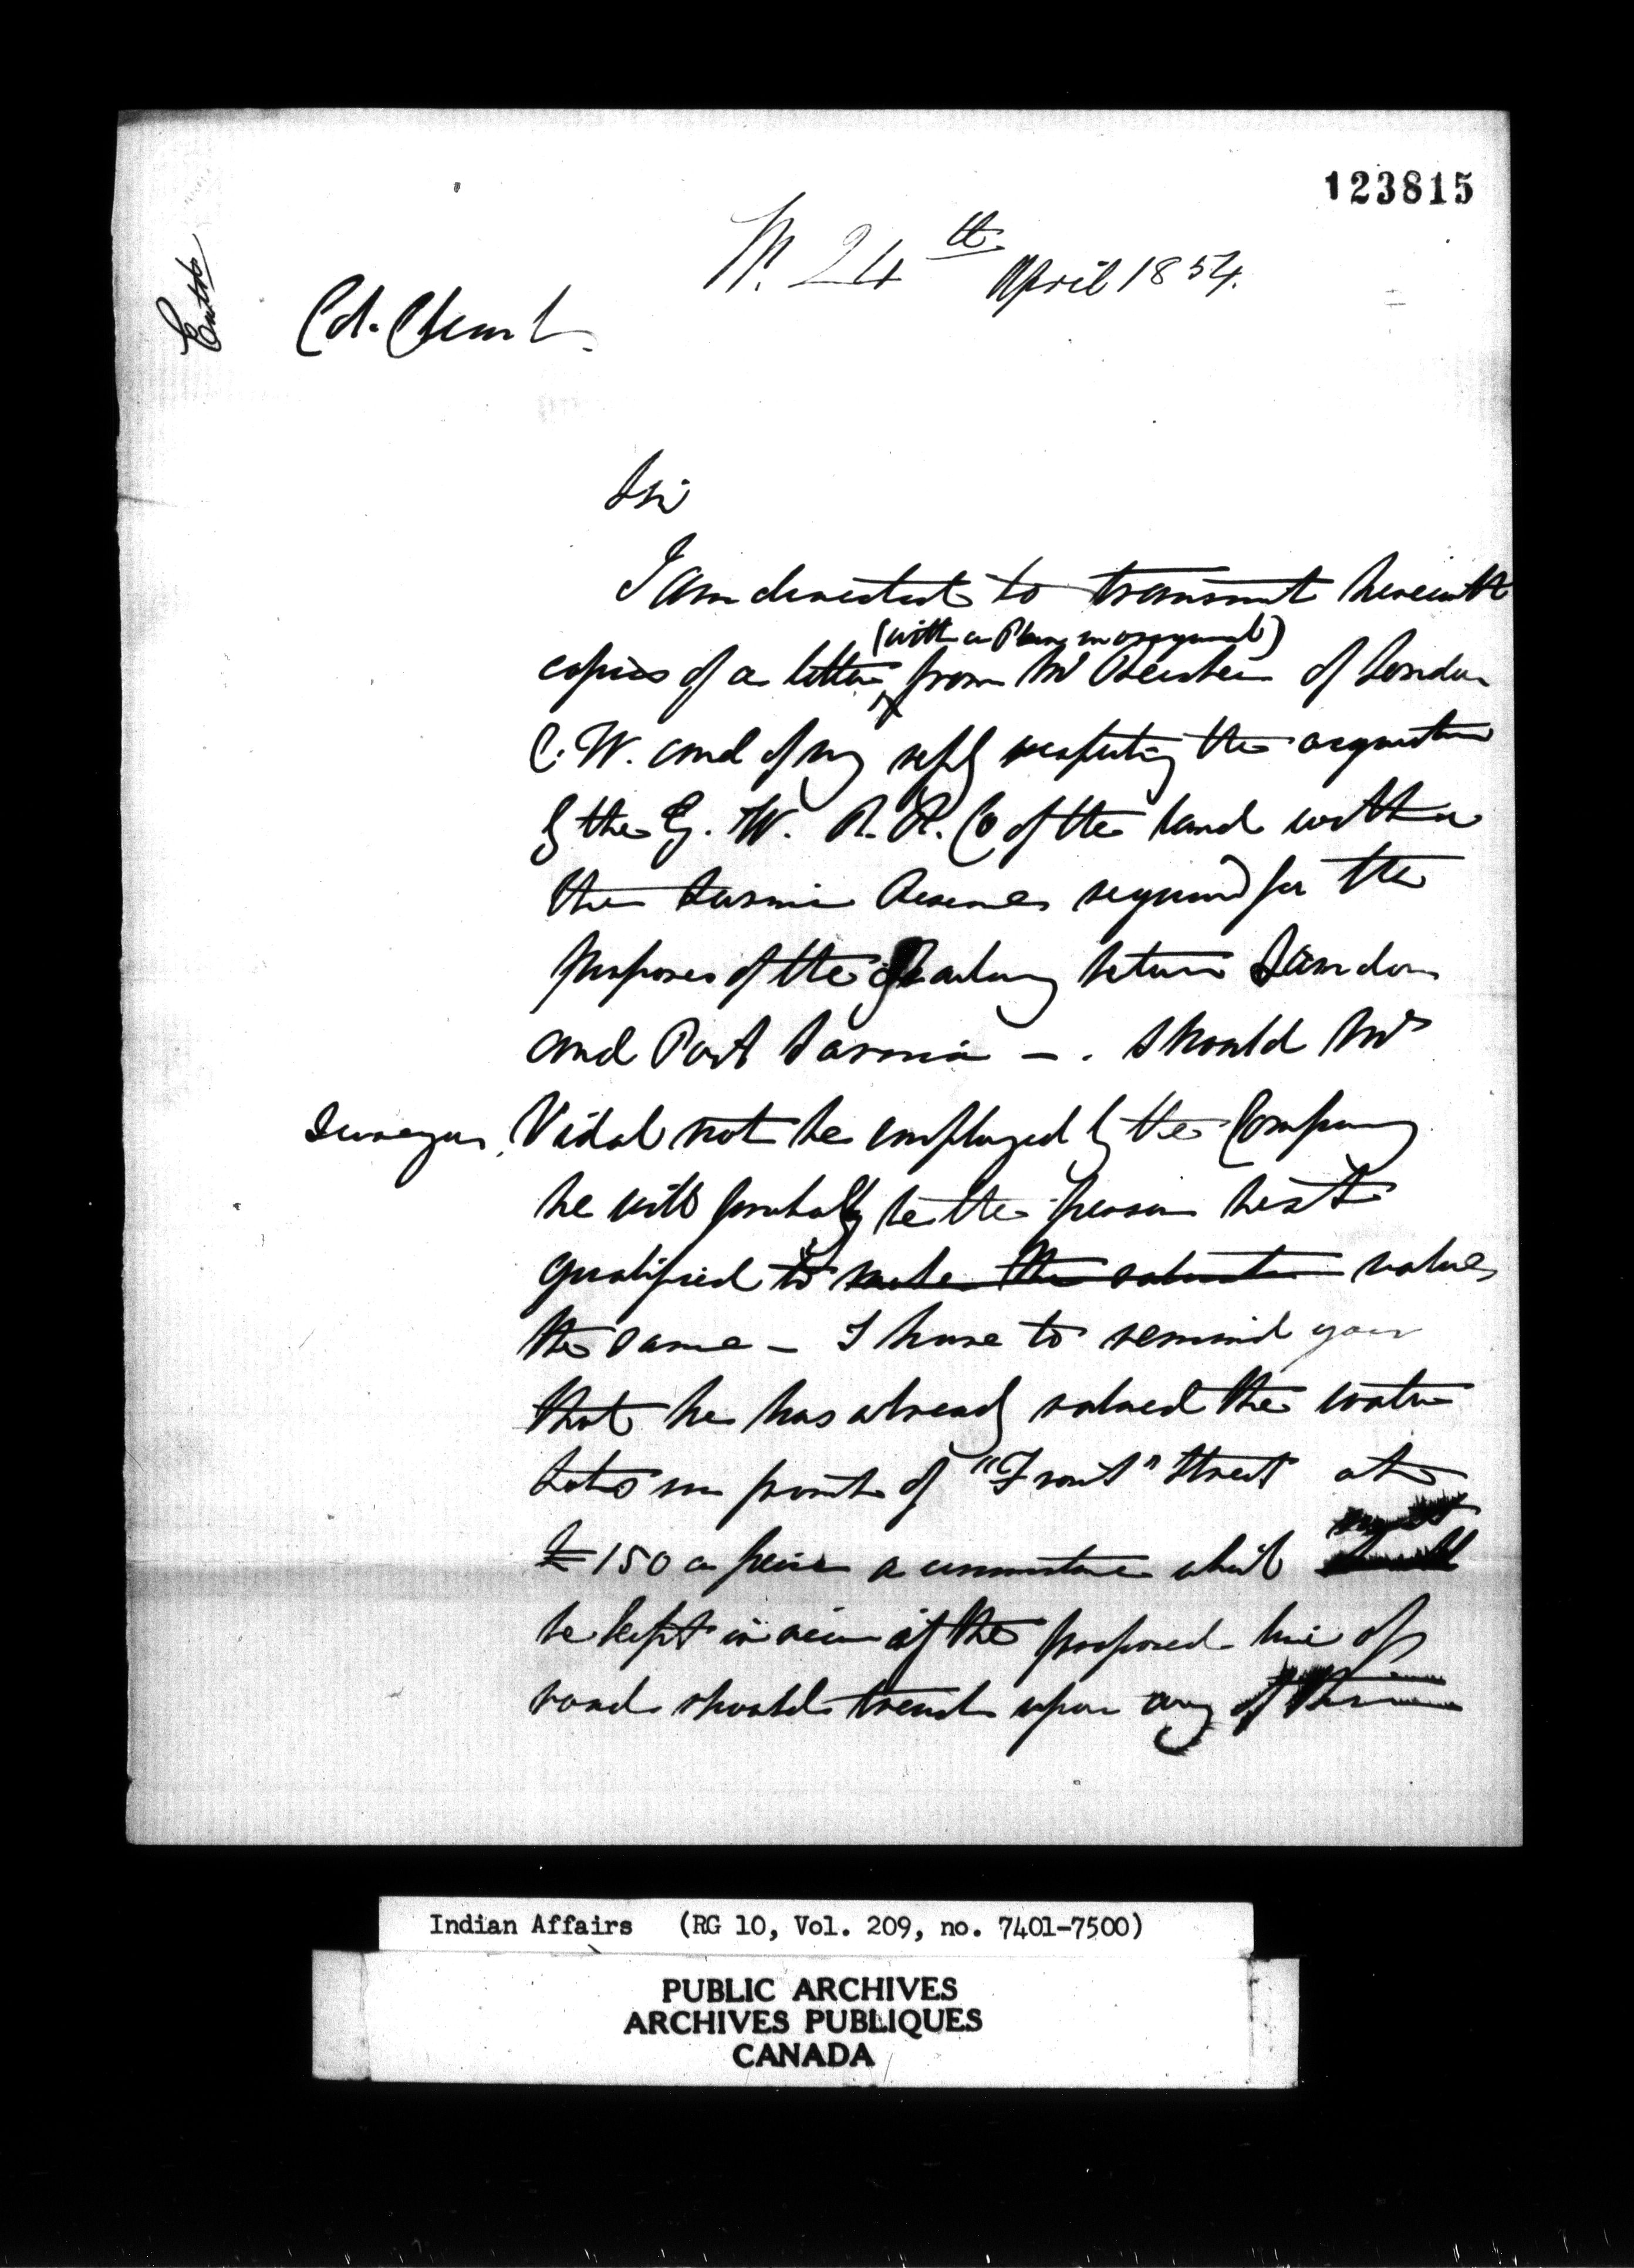 123815
24th April 1854.
Col.
Sir
I am directed to transmit herewith
(with a Plan in original)
copies of a letter from Mr of London
C. W. and of my reply respecting the acquisition
by the G. W. R. R. Co of the land within
the Sarnia Reserve required for the
purposes of the Railway between London
and Port Sarnia - . Should Mr
Surveyor Vidal not be employed by the Company
he will probably be the person best
qualified to make the valuation value
the same - I have to remind you
that he has already valued the water
Lots in front of "Front" Street at
£150 a piece a circumstance which
be kept in view if the proposed line of
road should trench upon any of them
Indian Affairs (RG 10, Vol. 209, no. 7401-7500)
PUBLIC ARCHIVES
ARCHIVES PUBLIQUES
CANADA